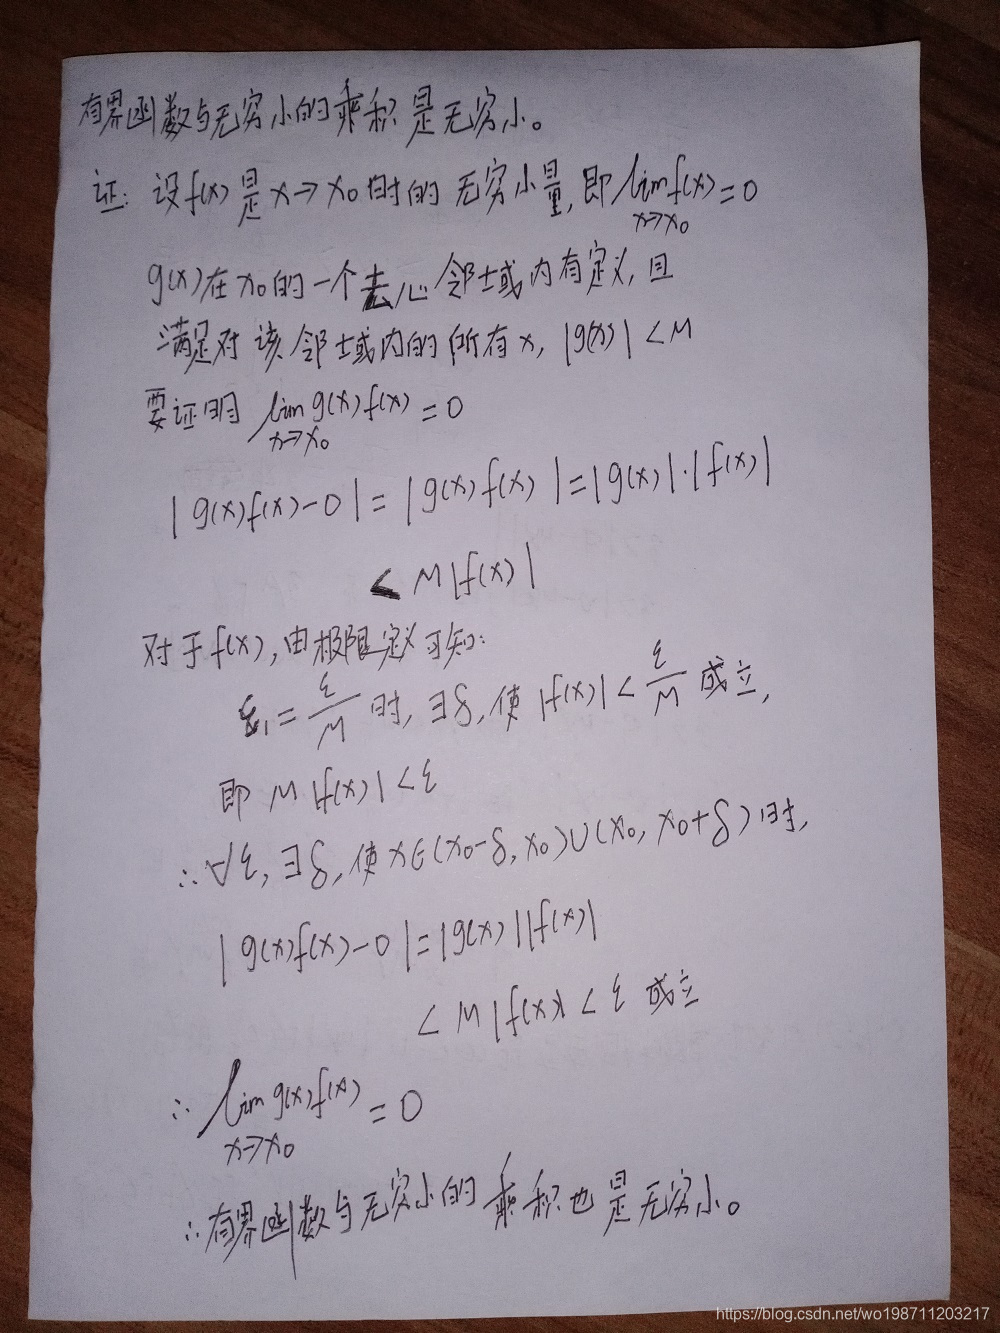 有界函数与无穷小的乘积是无穷小。
证: 设f(x)是x→x₀时的无穷小量, 即lim f(x)=0
x→x₀
g(x)在x₀的一个去心邻域内有定义, 且
满足对该邻域内的所有x, |g(x)|<M
要证明 lim g(x)f(x)=0
x→x₀
|g(x)f(x)-0|=|g(x)f(x)|=|g(x)|·|f(x)|
<M|f(x)|
对于f(x), 由极限定义可知:
ε₁=ε/M时, ∃δ, 使|f(x)|<ε/M成立,
即M|f(x)|<ε
∴∀ε, ∃δ, 使x∈(x₀-δ, x₀)∪(x₀, x₀+δ)时,
|g(x)f(x)-0|=|g(x)||f(x)|
<M|f(x)|<ε成立
∴ lim g(x)f(x)=0
x→x₀
∴有界函数与无穷小的乘积也是无穷小。
https://blog.csdn.net/wo198711203217